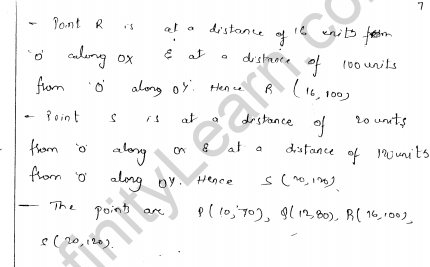 7
- Point R is at a distance of 16 units from
'O' along OX & at a distance of 100 units
from 'O' along OY. Hence R (16, 100)
- Point S is at a distance of 20 units
from 'O' along OX & at a distance of 120 units
from 'O' along OY. Hence S (20, 120).
- The points are P(10, 70), Q(12, 80), R(16, 100),
S(20, 120).
finityLearn.com